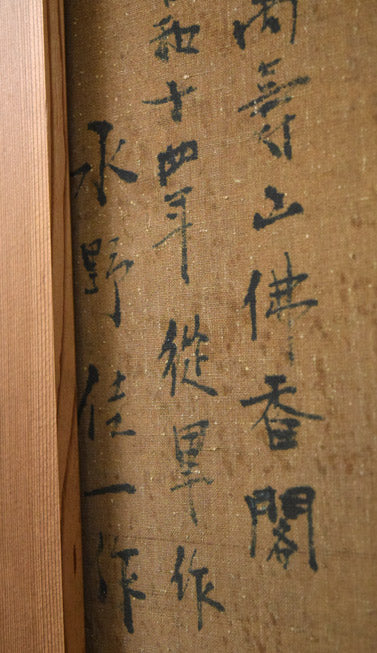 萬壽山佛香閣
和十四年 從軍作
水野佳一作